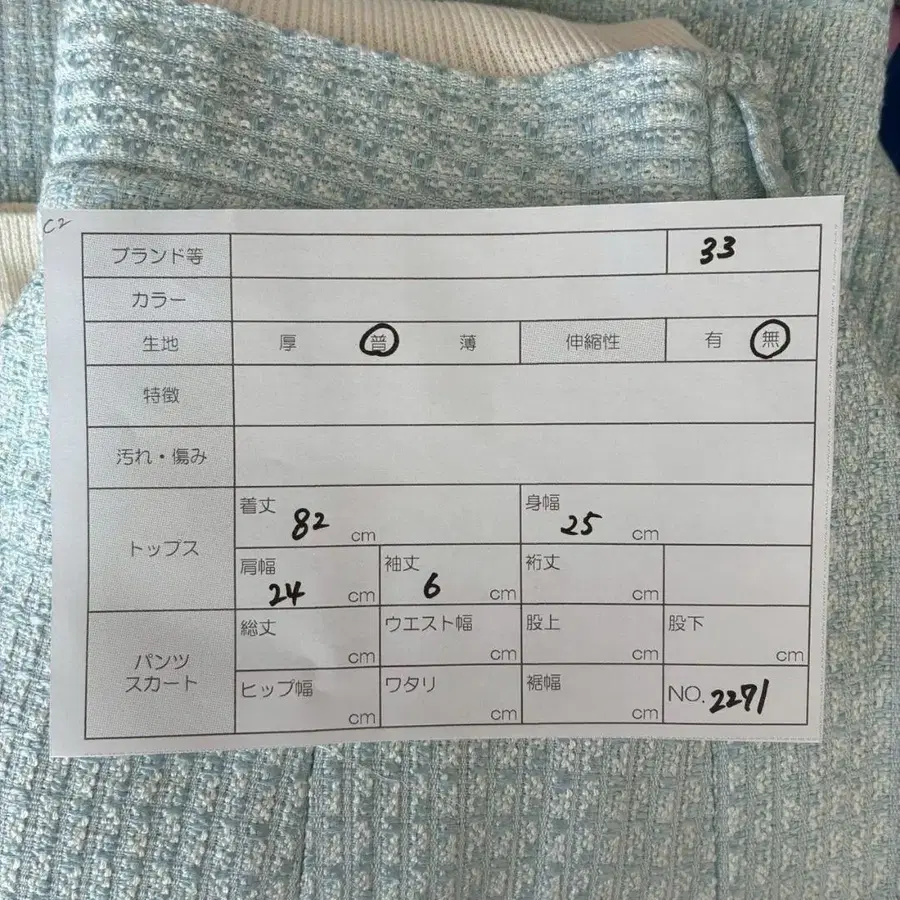 C2
ブランド等 33
カラー
生地 厚 普 薄 伸縮性 有 無
特徴
汚れ・傷み
トップス
着丈 82 cm 身幅 25 cm
肩幅 24 cm 袖丈 6 cm 裄丈 cm
パンツ
スカート
総丈 cm ウエスト幅 cm 股上 cm 股下 cm
ヒップ幅 cm ワタリ cm 裾幅 cm NO. 2271